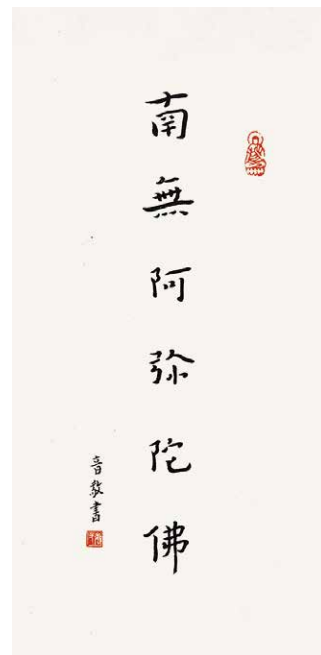 南無阿弥陀佛
音敬書